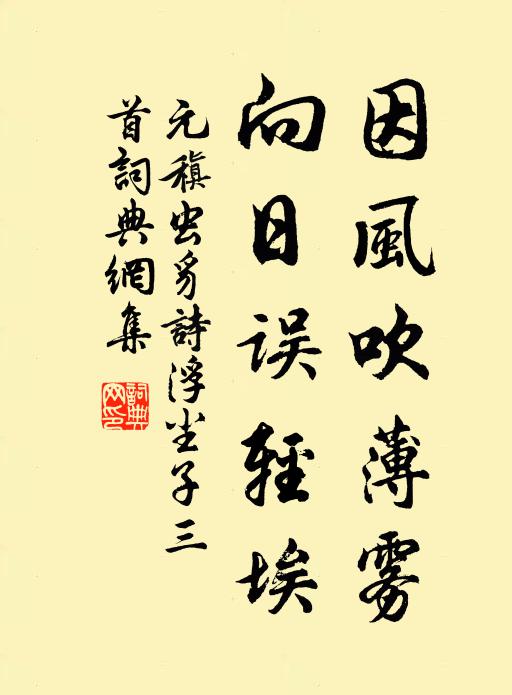 因風吹薄雾
向日误輕埃
元稹虫豸詩浮尘子三
首詞典網集
詞典网印